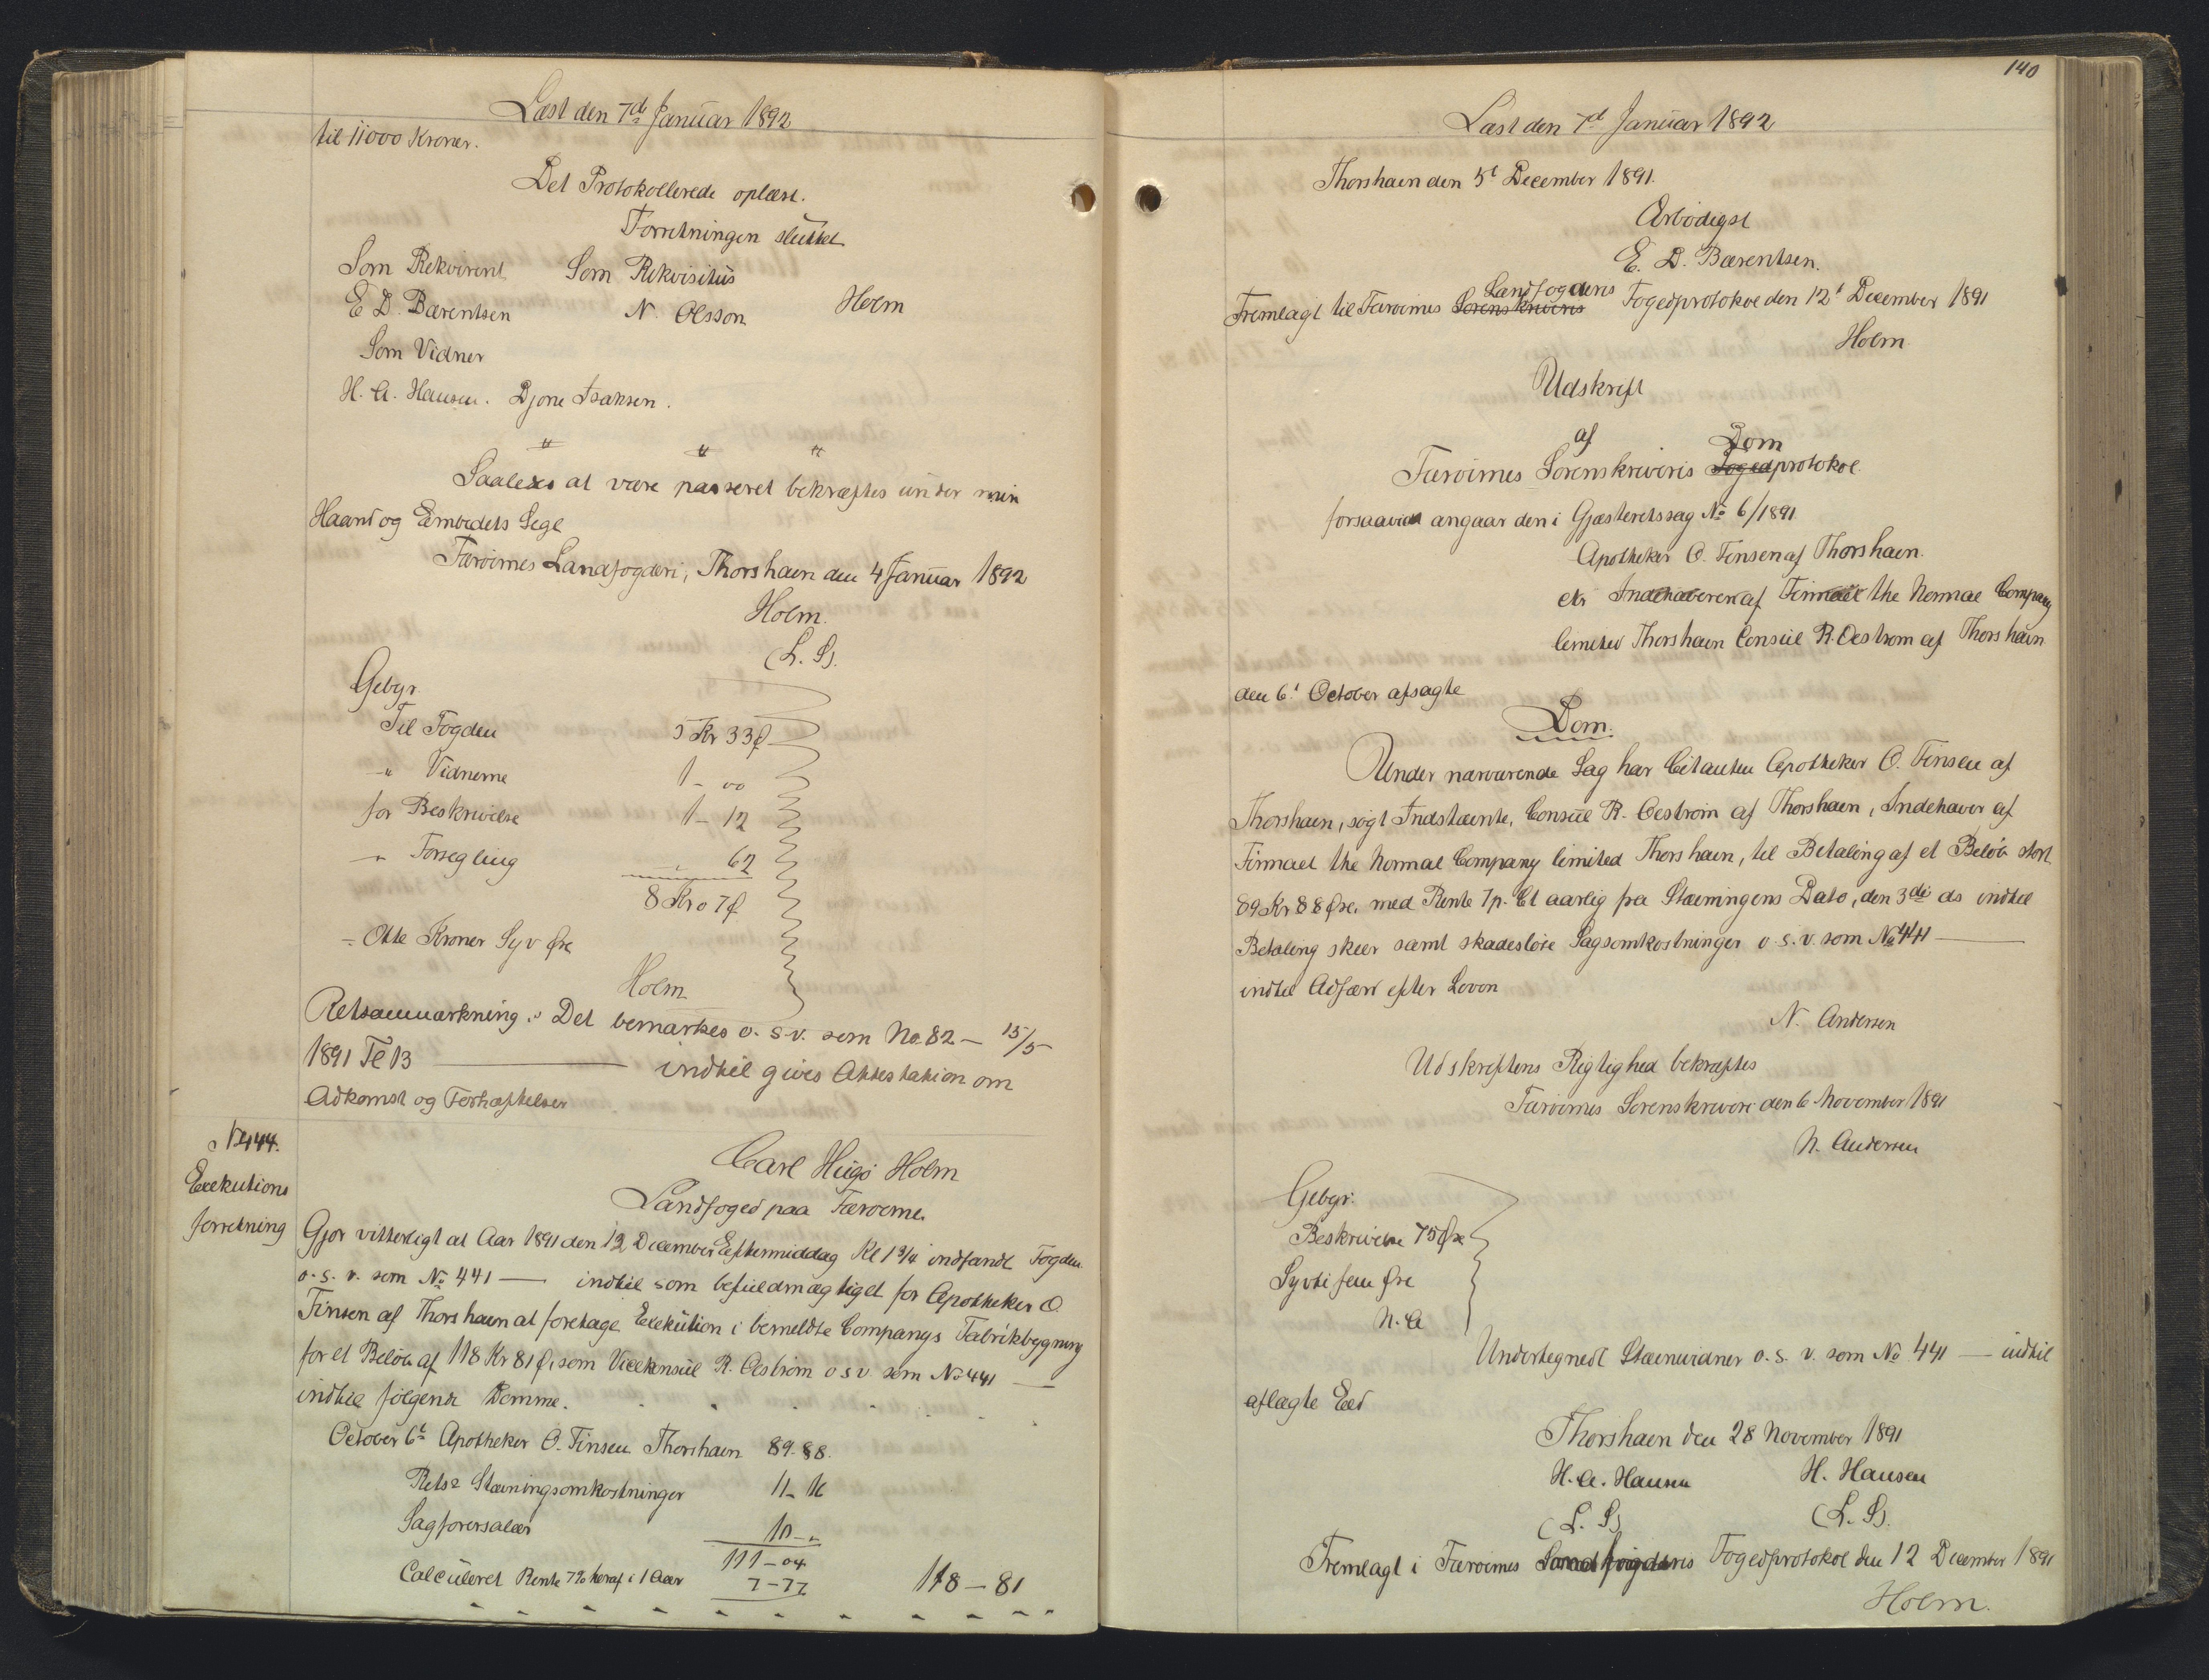 Læst den 7de Januar 1892
til 11000 Kroner.
Det Protokollerede oplæst.
Forretningen sluttet
Som Rekvirent Som Rekvisitus
E D. Bærentsen N. Olsson Holm
Som Vidner
H. A. Hansen. Djone Isaksen.
" " "
Saaledes at være passeret bekræftes under min
Haand og Embedets Segl
Færøernes Landfogderi, Thorshavn den 4 Januar 1892
Holm.
(L. S).
Gebyr.
Til Fogden 5 Kr 33 Ø
" Vidnerne 1 - 00
for Beskrivelse 1 - 12
" Forsegling " 62
8 Kr 07 Ø.
= Otte Kroner Syv Øre
Holm
Retsanmærkning: Det bemærkes o. s. v. som No. 82 - 15/5
1891 — indtil gives Attestation om
Adkomst og Forhæftelser
No 444.
Exekutions
forretning
Carl Hugo Holm
Landfoged paa Færøerne.
Gjør vitterligt at Aar 1891 den 12 December Eftermiddag Kl 1 3/4 indfandt Fogden
o. s. v. som No 441 — indtil som befuldmægtiget for Apotheker O.
Finsen af Thorshavn at foretage Exekution i bemeldte Companys Fabrikbygning
for et Beløb af 118 Kr 81 Ø, som Vicekonsul R. Oestrøm o s v. som No 441 —
indtil følgende Domme.
October 6t Apotheker O. Finsen Thorshavn 89-88.
Rets= Stævningsomkostninger 11-16
Sagførersalær 10-"
111-04
Calculeret Rente 7% heraf i 1 Aar 7-77 118-81
140
Læst den 7d Januar 1892
Thorshavn den 5t December 1891.
Ærbødigst
E. D. Bærentsen.
Landfogderis
Fremlagt til Færøernes Sorenskriveris Fogedprotokol den 12t December 1891
Holm
Udskrift
af Dom
Færøernes Sorenskriveris Fogedprotokol
forsaavidt angaar den i Gjæsteretssag No 6/1891
Apotheker O. Finsen af Thorshavn.
ctr Indehaveren af Firmaet the Normal Company
limeted Thorshavn Consul R. Oestrøm af Thorshavn
den 6t October afsagte
Dom.
Under nærværende Sag har Citanten Apotheker O. Finsen af
Thorshavn, søgt Indstævnte, Consul R. Oestrøm af Thorshavn, Indehaver af
Firmaet the Normal Company limited Thorshavn, til Betaling af et Beløb stort
89 Kr 88 Øre. med Rente 7 p. Ct aarlig fra Stævningens Dato, den 3die ds indtil
Betaling skeer samt skadesløse Sagsomkostninger o. s. v. som No 441 —
indtil Adfærd efter Loven
N. Andersen
Udskriftens Rigtighed bekræftes
Færøernes Sorenskriveri den 6 November 1891
N. Andersen
Gebyr:
Beskrivelse 75 Øre
Syvti fem Øre
N. A
Undertegnede Stævnevidner o. s. v. som No 441 — indtil
aflagte Eed
Thorshavn den 28 November 1891
H. A. Hansen H. Hansen
(L. S) (L. S).
Fremlagt i Færøernes Landfogderis Fogedprotokol den 12 December 1891
Holm.